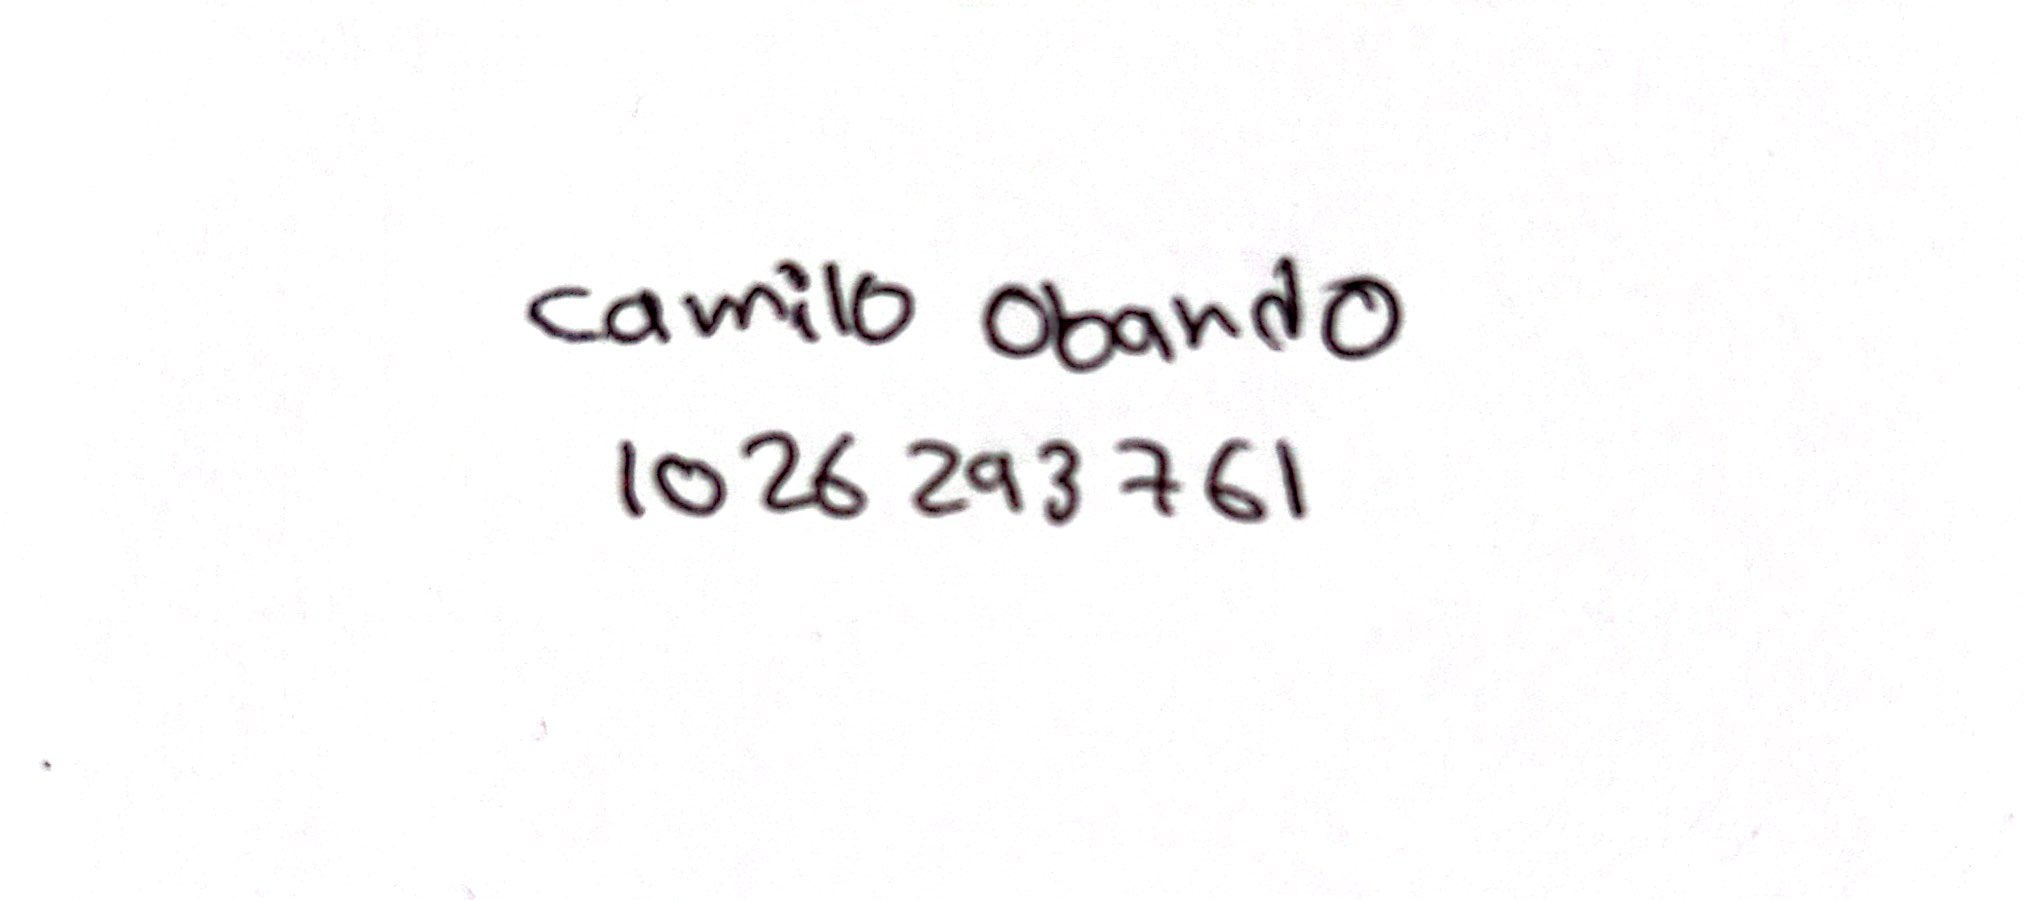 Camilo Obando
1026 293 761